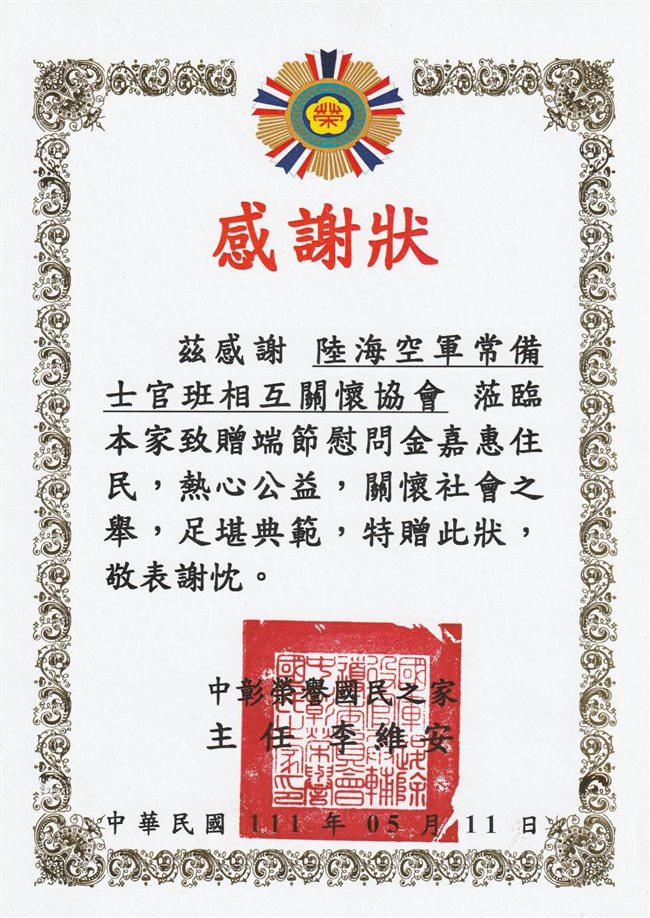 榮
感謝狀
茲感謝 陸海空軍常備
士官班相互關懷協會 蒞臨
本家致贈端節慰問金嘉惠住
民，熱心公益，關懷社會之
舉，足堪典範，特贈此狀，
敬表謝忱。
中彰榮譽國民之家
主任 李維安
中華民國 111 年 05 月 11 日